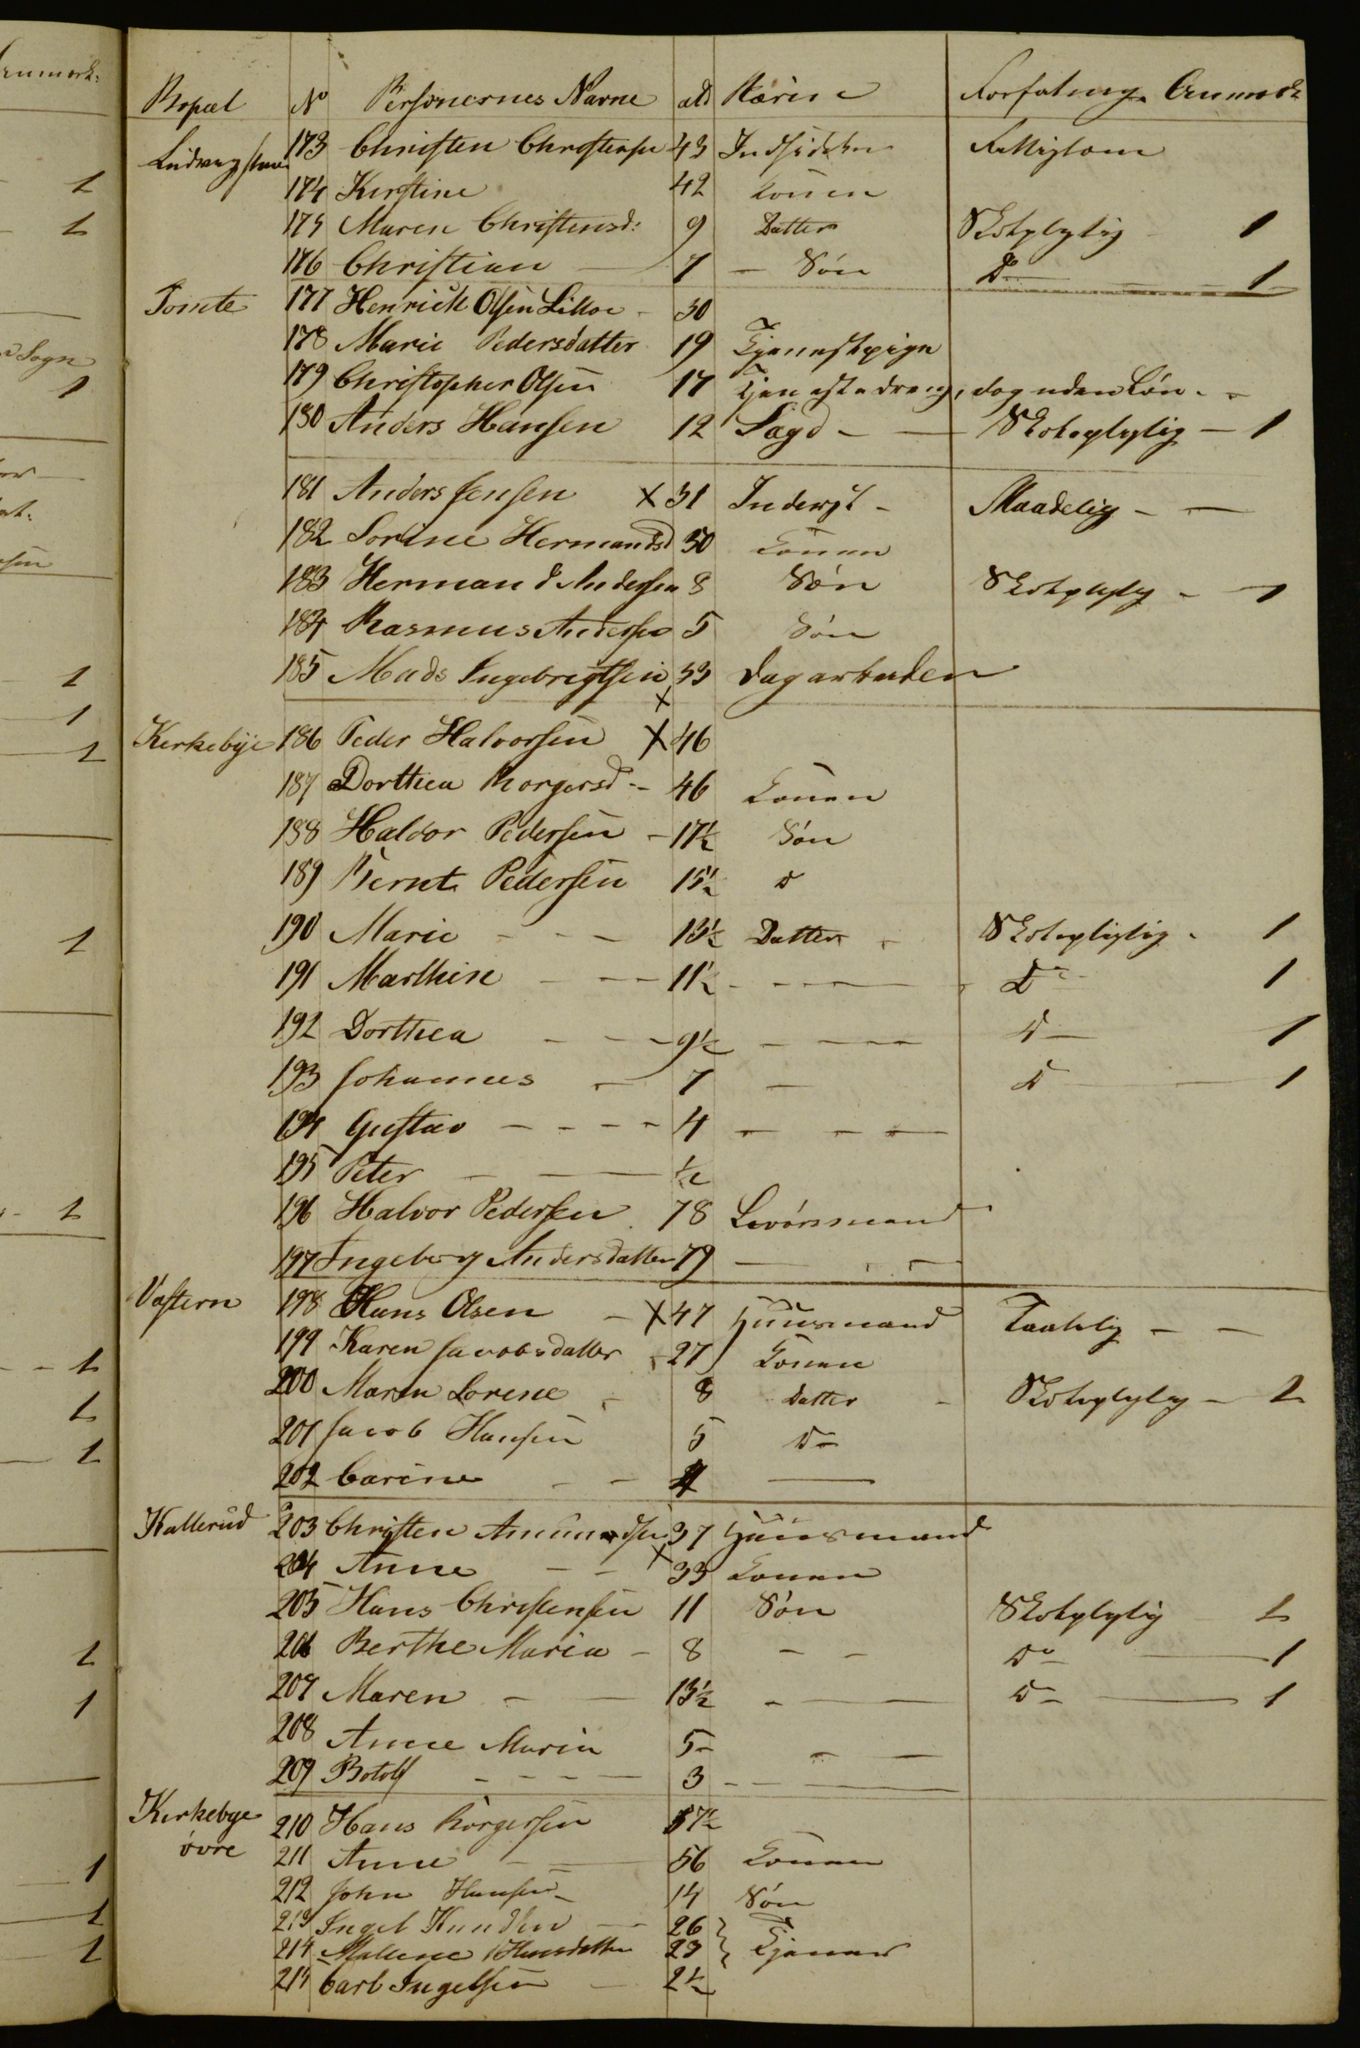 Bopæl No Personernes Navne ald Næring Forfatning Anmærk
173 Christen Christensen 43 Indsidder Fattiglem
174 Kirstine 42 Konen
175 Maren Christensd: 9 Datter Skolepligtig 1
176 Christian — 7 — Søn Do — 1
Tomte 177 Henrick Olsen Lilloe - 30
178 Marie Pedersdatter 19 Tjenestpige
179 Christopher Olsen 17 Tjenestedreng, dog uden Løn - -
180 Anders Hansen 12 Lægd - — Skolepligtig — 1
181 Anders Jensen X 31 Inderst - Maadelig - —
182 Sorine Hermandsd 30 Konen
183 Hermand Andersen 8 Søn Skolepligtig - 1
184 Rasmus Andersen 5 Søn
185 Mads Ingebrigtsen X 33 Dagarbeider
Kirkebye 186 Peder Halvorsen X 46
187 Dorthea Borgersd - 46 Konen
188 Haldor Pedersen - 17½ Søn
189 Bernt Pedersen 15½ D
190 Marie - - - 13½ Datter - Skolepligtig - 1
191 Marthine - - - 11½ - - - - — Do 1
192 Dorthea - - - 9½ - - - - D — 1
193 Johannes - 7 — D — 1
194 Gustav - - - - 4 - - —
195 Peter - — ½
196 Halvor Pedersen 78 Livørsmand
197 Ingeborg Andersdatter 79 — - - —
198 Hans Olsen - X 47 Huusmand Taalelig - -
199 Karen Jacobsdatter - 27 Konen
200 Maren Lorene - 8 Datter - Skolepligtig - 1
201 Jacob Hansen 5 Do
202 Carine - - 4 —
Kallerud 203 Christen Amundsen 37 Huusmand
204 Anne - - X 33 Konen
205 Hans Christensen 11 Søn Skolepligtig 1
206 Berthe Maria - 8 - - Do — 1
207 Maren - - 13½ - — Do — 1
208 Anne Maria 5 - - —
209 Botolf - - - - 3 - - —
Kirkebye øvre 210 Hans Borgersen 57½
211 Anne - — 56 Konen
212 John Hansen - 14 Søn
213 Ingel Knudsen — 26 } Tjenere
214 Mallene Hansdatter 23
215 Carl Ingelsen - 2½